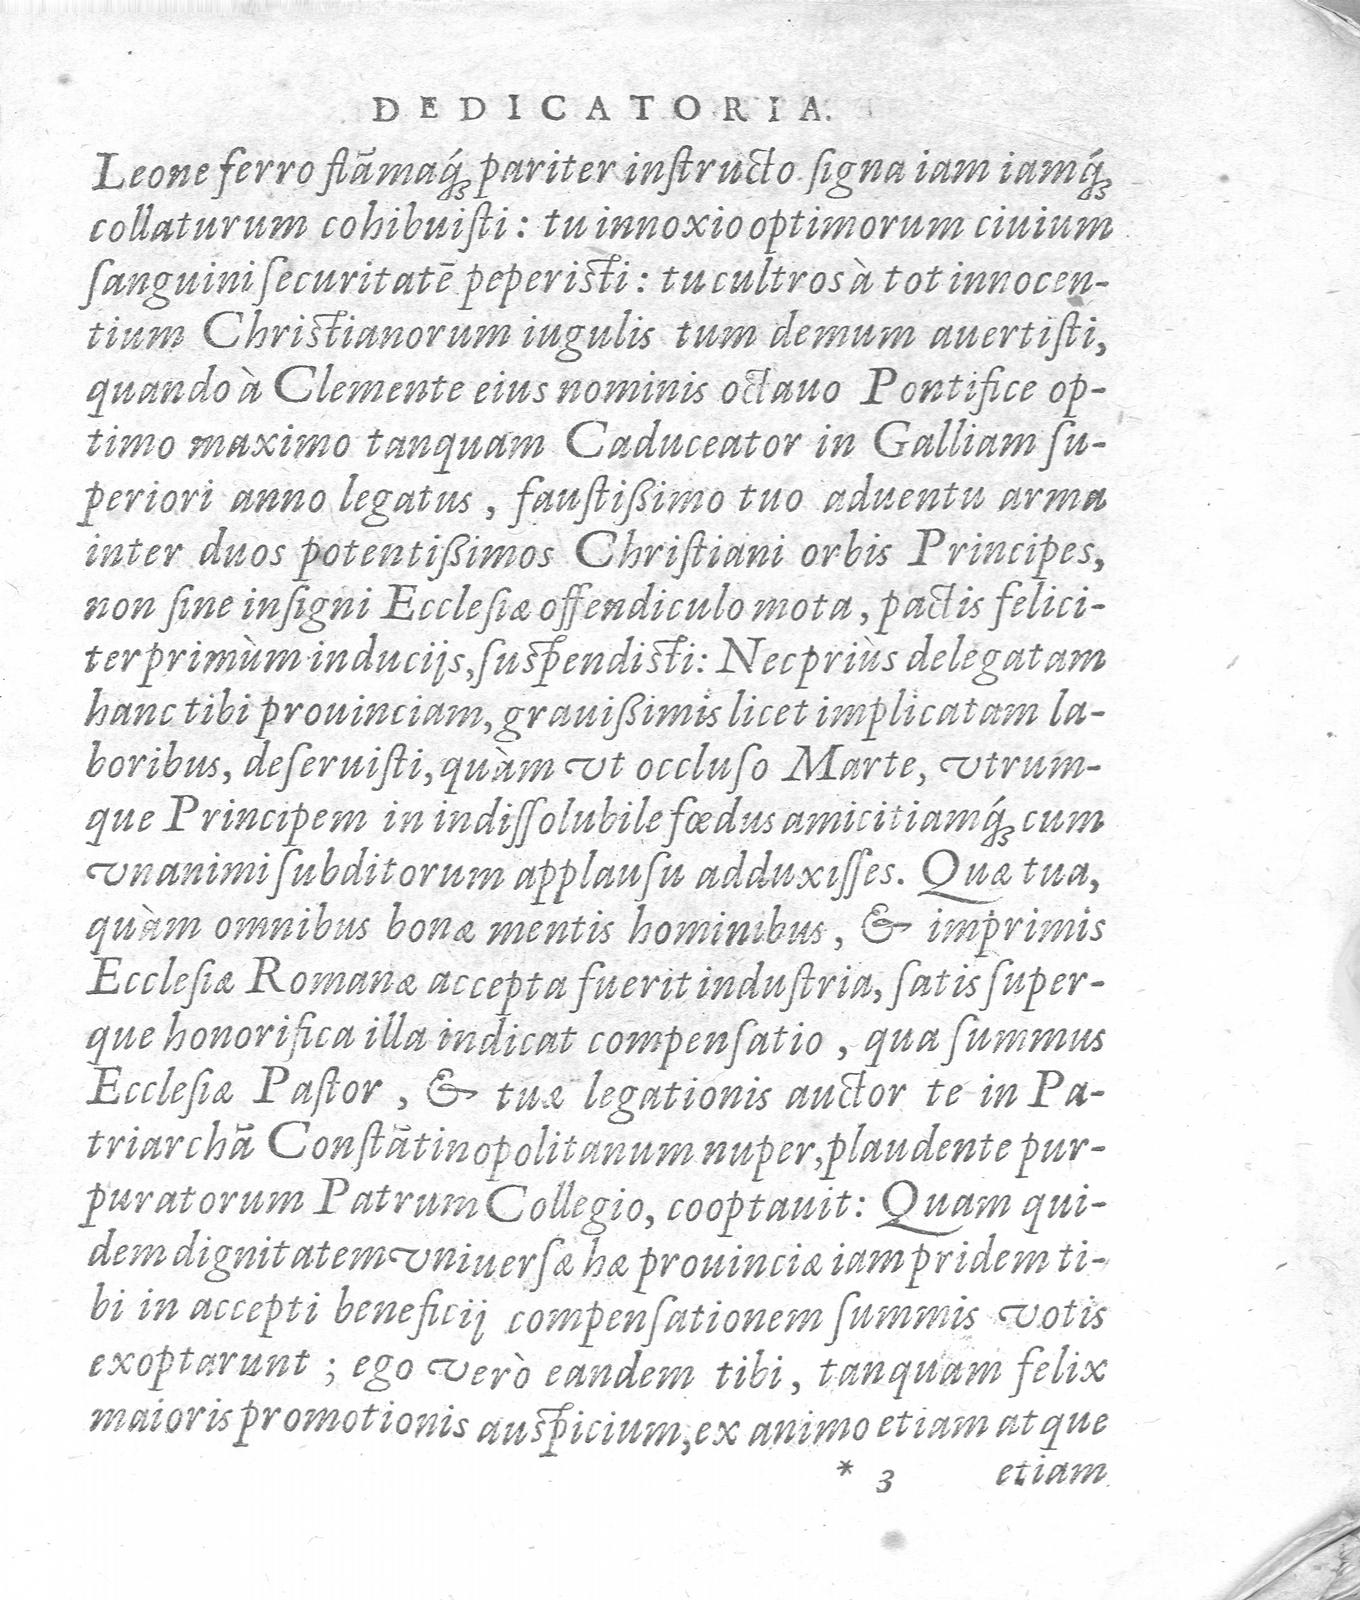 DEDICATORIA.
Leone ferro flāmaq́ꝫ pariter inſtructo ſigna iam iamq́ꝫ
collaturum cohibuiſti: tu innoxio optimorum ciuium
ſanguini ſecuritatē peperiſti: tu cultros à tot innocen-
tium Chriſtianorum iugulis tum demum auertiſti,
quando à Clemente eius nominis octauo Pontifice op-
timo maximo tanquam Caduceator in Galliam ſu-
periori anno legatus, fauſtißimo tuo aduentu arma
inter duos potentißimos Chriſtiani orbis Principes,
non ſine inſigni Eccleſiæ offendiculo mota, pactis felici-
ter primùm inducijs, ſuſpendiſti: Nec priùs delegatam
hanc tibi prouinciam, grauißimis licet implicatam la-
boribus, deſeruiſti, quàm vt occluſo Marte, vtrum-
que Principem in indiſſolubile fœdus amicitiamq́ꝫ cum
vnanimi ſubditorum applauſu adduxiſſes. Quæ tua,
quàm omnibus bonæ mentis hominibus, & imprimis
Eccleſiæ Romanæ accepta fuerit induſtria, ſatis ſuper-
que honorifica illa indicat compenſatio, qua ſummus
Eccleſiæ Paſtor, & tuæ legationis auctor te in Pa-
triarchā Conſtātinopolitanum nuper, plaudente pur-
puratorum Patrum Collegio, cooptauit: Quam qui-
dem dignitatem vniuerſæ hæ prouinciæ iam pridem ti-
bi in accepti beneficij compenſationem ſummis votis
exoptarunt; ego verò eandem tibi, tanquam felix
maioris promotionis auſpicium, ex animo etiam atque
* 3 etiam